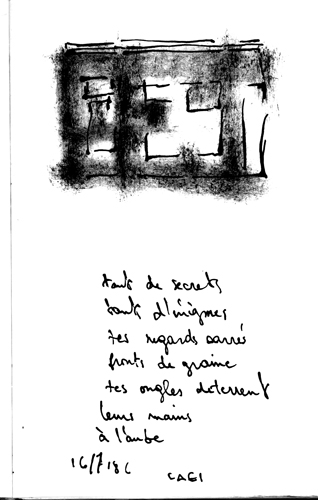 tant de secrets
tant d'énigmes
tes regards carrés
fronts de graine
tes ongles déterrent
leurs mains
à l'aube
16/7/86